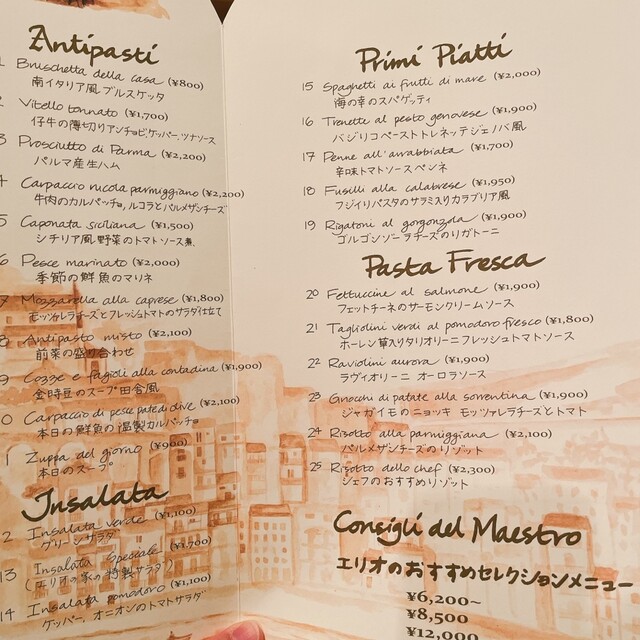 Antipasti
1 Bruschetta della casa (¥800)
南イタリア風ブルスケッタ
2 Vitello tonnato (¥1,700)
仔牛の薄切りアンチョビ,ケッパー,ツナソース
3 Prosciutto di Parma (¥2,200)
パルマ産生ハム
4 Carpaccio rucola parmiggiano (¥2,200)
牛肉のカルパッチョ,ルコラとパルメザンチーズ
5 Caponata siciliana (¥1,500)
シチリア風野菜のトマトソース煮
6 Pesce marinato (¥2,000)
季節の鮮魚のマリネ
7 Mozzarella alla caprese (¥1,800)
モッツァレラチーズとフレッシュトマトのサラダ仕立て
8 Antipasto misto (¥2,100)
前菜の盛り合わせ
9 Cozze e fagioli alla contadina (¥1,900)
金時豆のスープ田舎風
0 Carpaccio di pesce pate di olive (¥2,100)
本日の鮮魚の温製カルパッチョ
1 Zuppa del giorno (¥900)
本日のスープ
Insalata
2 Insalata verde (¥1,100)
グリーンサラダ
13 Insalata speciale (¥1,700)
(エリオの家の特製サラダ)
14 Insalata pomodoro (¥1,100)
ケッパー、オニオンのトマトサラダ
Primi Piatti
15 Spaghetti ai frutti di mare (¥2,000)
海の幸のスパゲッティ
16 Trenette al pesto genovese (¥1,900)
バジリコペーストトレネッテジェノバ風
17 Penne all'arrabbiata (¥1,700)
辛味トマトソースペンネ
18 Fusilli alla calabrese (¥1,950)
フジイリパスタのサラミ入りカラブリア風
19 Rigatoni al gorgonzola (¥1,900)
ゴルゴンゾーラチーズのリガトーニ
Pasta Fresca
20 Fettuccine al salmone (¥1,900)
フェットチーネのサーモンクリームソース
21 Tagliolini verdi al pomodoro fresco (¥1,800)
ホーレン草入りタリオリーニフレッシュトマトソース
22 Raviolini aurora (¥1,900)
ラヴィオリーニ オーロラソース
23 Gnocchi di patate alla sorrentina (¥1,900)
ジャガイモのニョッキ モッツァレラチーズとトマト
24 Risotto alla parmiggiana (¥2,100)
パルメザンチーズのリゾット
25 Risotto dello chef (¥2,300)
シェフのおすすめリゾット
Consigli del Maestro
エリオのおすすめセレクションメニュー
¥6,200~
¥8,500
¥12,000